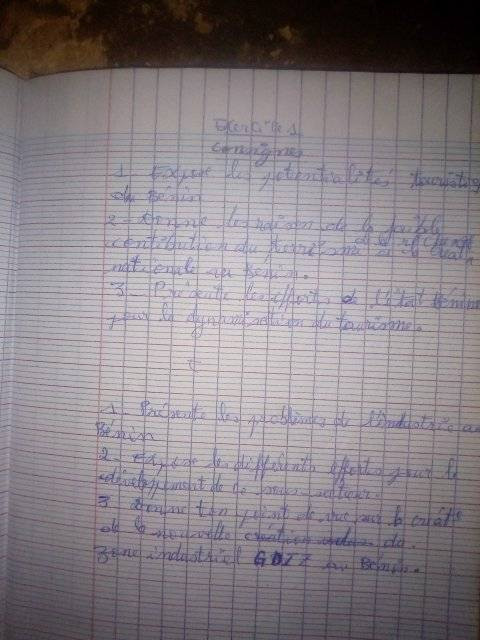 Exercice 1
Consignes
1 - Expose les potentialités touristiq
du Bénin
2 - Donne les raison de la faible
contribution du tourisme à la créat
de la richesse
nationale au Bénin.
3 - Présente les efforts de l'état Bénin
pour la dynamisation du tourisme.
1 - Présente les problèmes de l'industrie au
Bénin
2 - Expose les différents efforts pour le
développement de ce sous-secteur.
3 Donne ton point de vue sur la créat°
de la nouvelle de
Zone industriel GDIZ au Bénin.